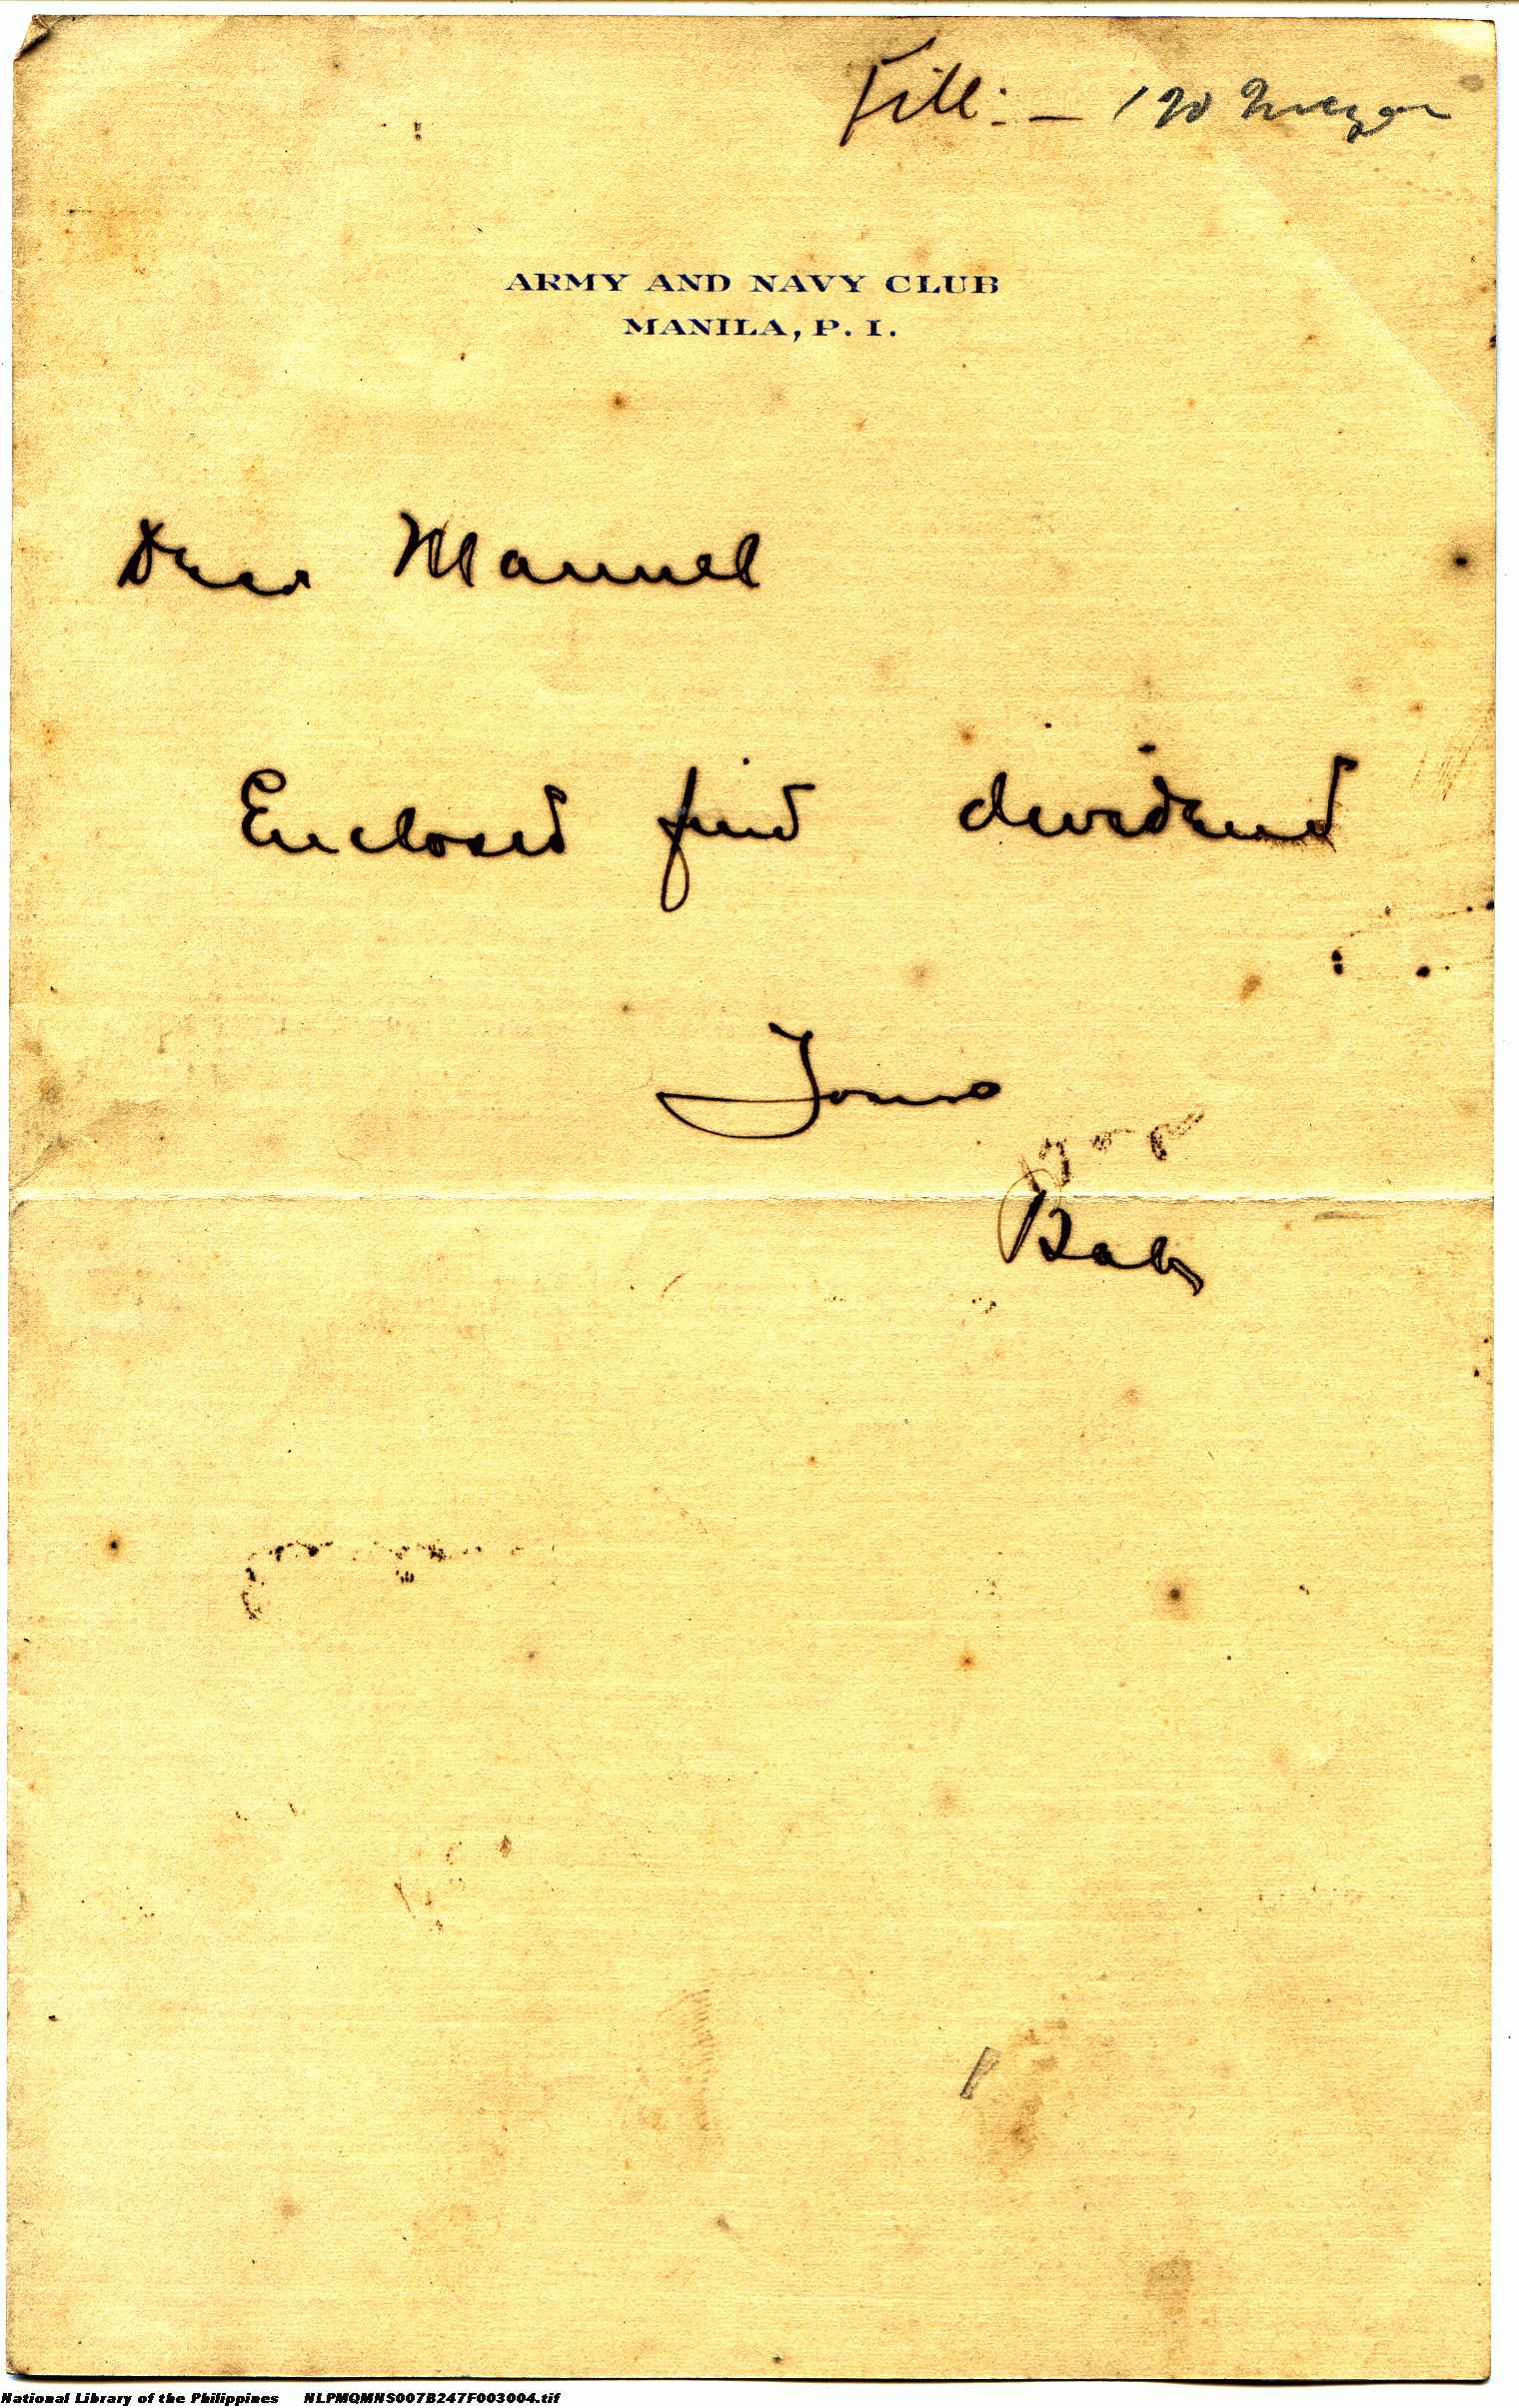 File: —
ARMY AND NAVY CLUB
MANILA, P. I.
Dear Manuel
Enclosed find dividend
Yours
Bob
National Library of the Philippines NLPMQMNS007B247F003004.tif